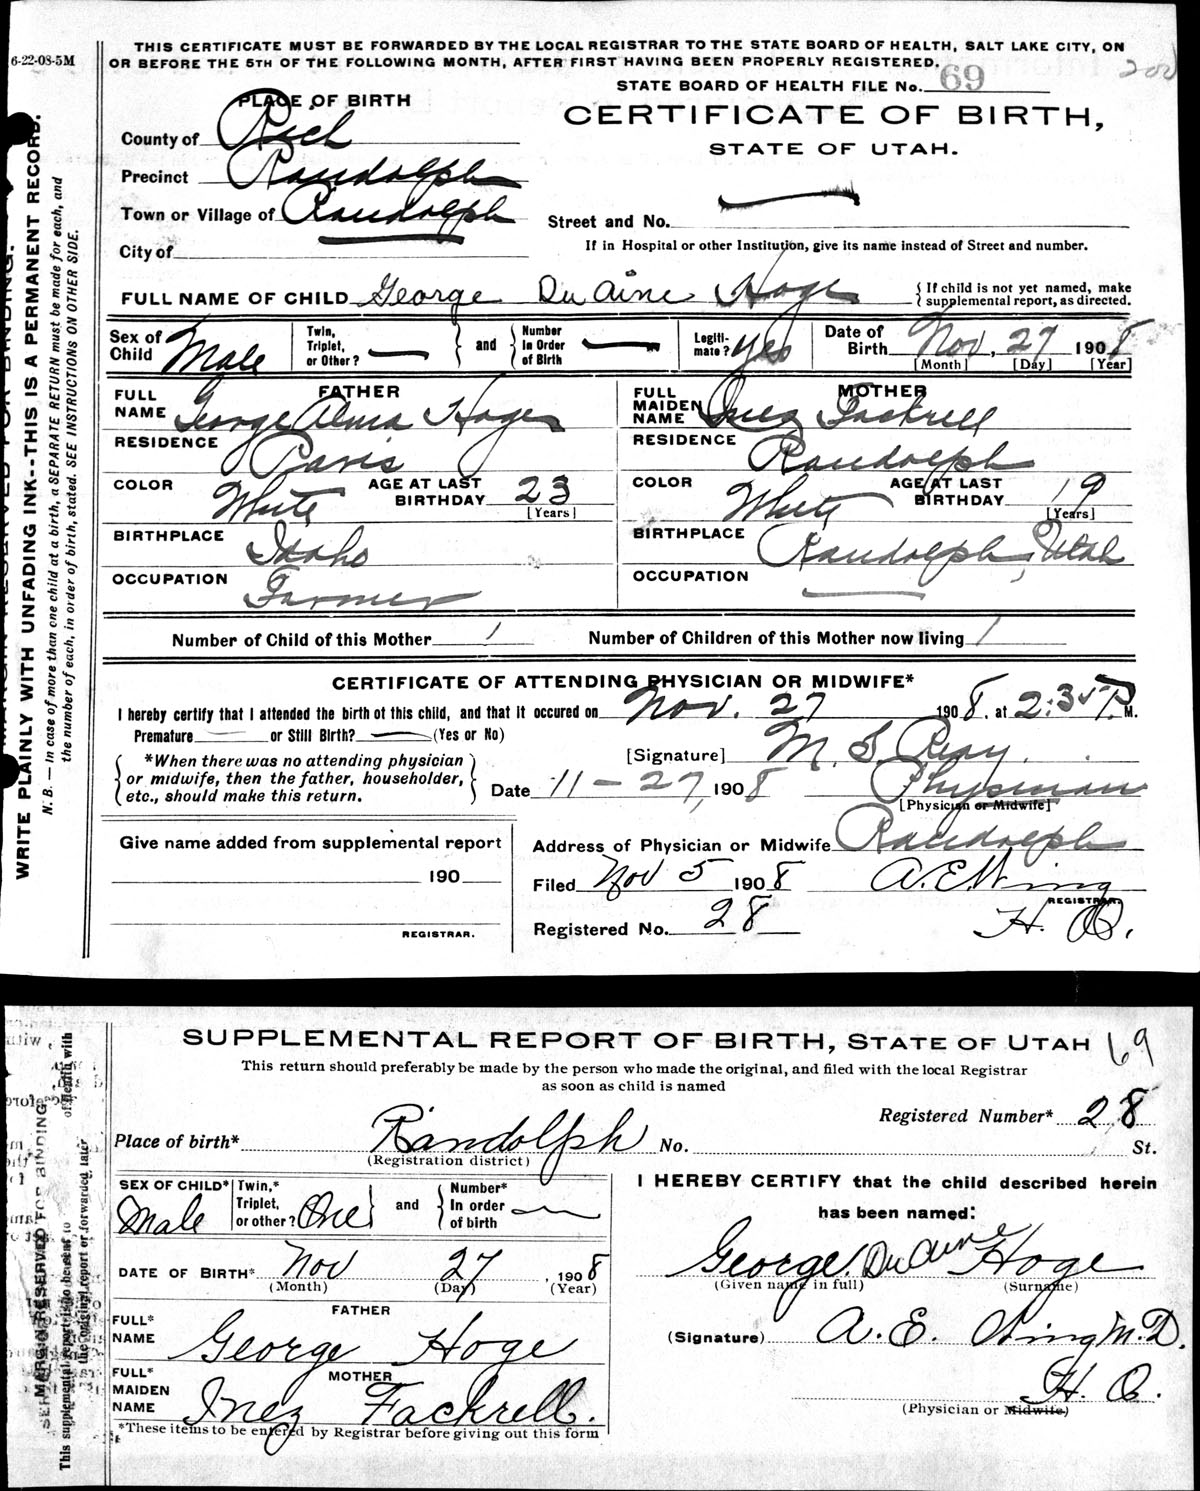 6-22-08-5M
THIS CERTIFICATE MUST BE FORWARDED BY THE LOCAL REGISTRAR TO THE STATE BOARD OF HEALTH, SALT LAKE CITY, ON
OR BEFORE THE 5TH OF THE FOLLOWING MONTH, AFTER FIRST HAVING BEEN PROPERLY REGISTERED.
200
STATE BOARD OF HEALTH FILE No. 69
PLACE OF BIRTH
CERTIFICATE OF BIRTH,
STATE OF UTAH.
County of Rich
Precinct Randolph
Town or Village of Randolph
Street and No.
City of
If in Hospital or other Institution, give its name instead of Street and number.
FULL NAME OF CHILD George DuAine Hoge
If child is not yet named, make
supplemental report, as directed.
Sex of Child Male
Twin, Triplet, or Other? —
and
Number In Order of Birth —
Legiti-mate? yes
Date of Birth Nov, 27 1908
[Month] [Day] [Year]
FATHER
FULL NAME George Alma Hoge
RESIDENCE Paris
COLOR White AGE AT LAST BIRTHDAY 23
[Years]
BIRTHPLACE Idaho
OCCUPATION Farmer
MOTHER
FULL MAIDEN NAME Inez Fackrell
RESIDENCE Randolph
COLOR White AGE AT LAST BIRTHDAY 19
[Years]
BIRTHPLACE Randolph, Utah
OCCUPATION
Number of Child of this Mother 1 Number of Children of this Mother now living 1
CERTIFICATE OF ATTENDING PHYSICIAN OR MIDWIFE*
I hereby certify that I attended the birth of this child, and that it occured on Nov. 27 1908. at 2:35 P. M.
Premature — or Still Birth? — (Yes or No)
[Signature] M. S. Reay.
*When there was no attending physician
or midwife, then the father, householder,
etc., should make this return.
Date 11-27, 1908 Physician
[Physician or Midwife]
Address of Physician or Midwife Randolph
Give name added from supplemental report
190
REGISTRAR.
Filed Nov 5 1908 A. E.
REGISTRAR.
Registered No. 28
WRITE PLAINLY WITH UNFADING INK--THIS IS A PERMANENT RECORD.
N. B. — In case of more than one child at a birth, a SEPARATE RETURN must be made for each, and
the number of each, in order of birth, stated. SEE INSTRUCTIONS ON OTHER SIDE.
SUPPLEMENTAL REPORT OF BIRTH, STATE OF UTAH 69
This return should preferably be made by the person who made the original, and filed with the local Registrar
as soon as child is named
Registered Number* 28
Place of birth* Randolph No. St.
(Registration district)
SEX OF CHILD* Male
Twin,* Triplet, or other? One
and
Number* In order of birth
DATE OF BIRTH* Nov 27, 1908
(Month) (Day) (Year)
FATHER
FULL* NAME George Hoge
MOTHER
FULL* MAIDEN NAME Inez Fackrell.
*These items to be entered by Registrar before giving out this form
I HEREBY CERTIFY that the child described herein
has been named:
George DuAine Hoge
(Given name in full) (Surname)
(Signature) A. E. M.D.
(Physician or Midwife)
MARGIN RESERVED FOR BINDING